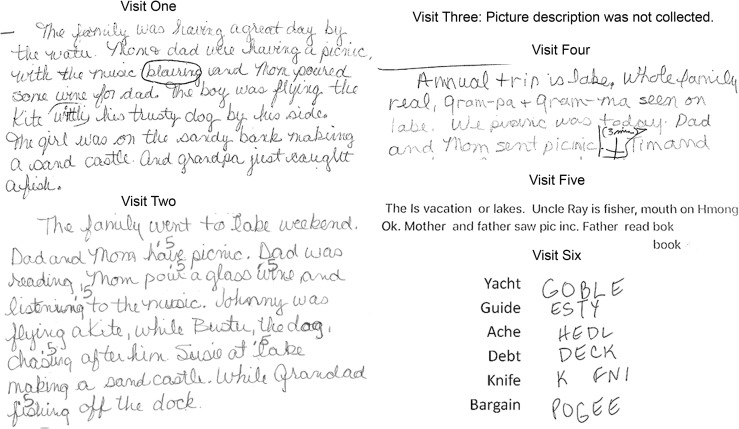 Visit One
The family was having a great day by
the water. Mom & dad were having a picnic,
with the music blairing and Mom poured
some wine for dad. The boy was flying the
kite with his trusty dog by his side.
The girl was on the sandy bank making
a sand castle. And grandpa just caught
a fish.
Visit Two
The family went to lake weekend.
Dad and Mom have picnic. Dad was
reading, Mom pour a glass wine and
listening to the music. Johnny was
flying a kite, while Buster, the dog,
chasing after him Susie at lake
making a sand castle. While Grandad
fishing off the dock.
Visit Three: Picture description was not collected.
Visit Four
Annual trip is lake, whole family
real, gram-pa + gram-ma seen on
lake. We picnic was today. Dad
and Mom sent picinic (3 min)
Visit Five
The Is vacation or lakes. Uncle Ray is fisher, mouth on Hmong
Ok. Mother and father saw pic inc. Father read bok
book
Visit Six
Yacht GOBLE
Guide ESTY
Ache HEDL
Debt DECK
Knife K FNI
Bargain POGEE